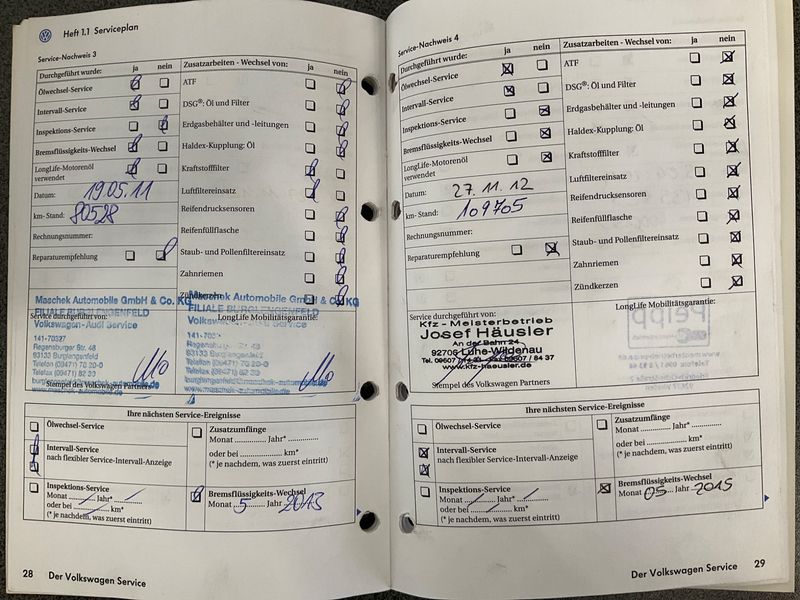 Heft 1.1 Serviceplan
Service-Nachweis 3
Durchgeführt wurde: ja nein
Ölwechsel-Service
Intervall-Service
Inspektions-Service
Bremsflüssigkeits-Wechsel
LongLife-Motorenöl
verwendet
Datum: 19.05.11
km-Stand: 80528
Rechnungsnummer:
Reparaturempfehlung
Zusatzarbeiten - Wechsel von: ja nein
ATF
DSG®: Öl und Filter
Erdgasbehälter und -leitungen
Haldex-Kupplung: Öl
Kraftstofffilter
Luftfiltereinsatz
Reifendrucksensoren
Reifenfüllflasche
Staub- und Pollenfiltereinsatz
Zahnriemen
Zündkerzen
Service durchgeführt von:
Maschek Automobile GmbH & Co. KG
FILIALE BURGLENGENFELD
Volkswagen-Audi Service
141-70327
Regensburger Str. 48
93133 Burglengenfeld
Telefon (09471) 70 20-0
Telefax (09471)
Stempel des Volkswagen Partners
LongLife Mobilitätsgarantie:
Maschek Automobile GmbH & Co. KG
FILIALE BURGLENGENFELD
Ihre nächsten Service-Ereignisse
Ölwechsel-Service
Intervall-Service
nach flexibler Service-Intervall-Anzeige
Inspektions-Service
Monat Jahr*
oder bei km*
(* je nachdem, was zuerst eintritt)
Zusatzumfänge
Monat Jahr*
oder bei km*
(* je nachdem, was zuerst eintritt)
Bremsflüssigkeits-Wechsel
Monat 5 Jahr 2013
28 Der Volkswagen Service
Service-Nachweis 4
Durchgeführt wurde: ja nein
Ölwechsel-Service
Intervall-Service
Inspektions-Service
Bremsflüssigkeits-Wechsel
LongLife-Motorenöl
verwendet
Datum: 27.11.12
km-Stand: 109705
Rechnungsnummer:
Reparaturempfehlung
Zusatzarbeiten - Wechsel von: ja nein
ATF
DSG®: Öl und Filter
Erdgasbehälter und -leitungen
Haldex-Kupplung: Öl
Kraftstofffilter
Luftfiltereinsatz
Reifendrucksensoren
Reifenfüllflasche
Staub- und Pollenfiltereinsatz
Zahnriemen
Zündkerzen
Service durchgeführt von:
Kfz - Meisterbetrieb
Josef Häusler
An der Bahn 24
92706 Luhe-Wildenau
www.kfz-haeusler.de
Stempel des Volkswagen Partners
LongLife Mobilitätsgarantie:
Ihre nächsten Service-Ereignisse
Ölwechsel-Service
Intervall-Service
nach flexibler Service-Intervall-Anzeige
Inspektions-Service
Monat Jahr*
oder bei km*
(* je nachdem, was zuerst eintritt)
Zusatzumfänge
Monat Jahr*
oder bei km*
(* je nachdem, was zuerst eintritt)
Bremsflüssigkeits-Wechsel
Monat 05 Jahr 2015
Der Volkswagen Service 29